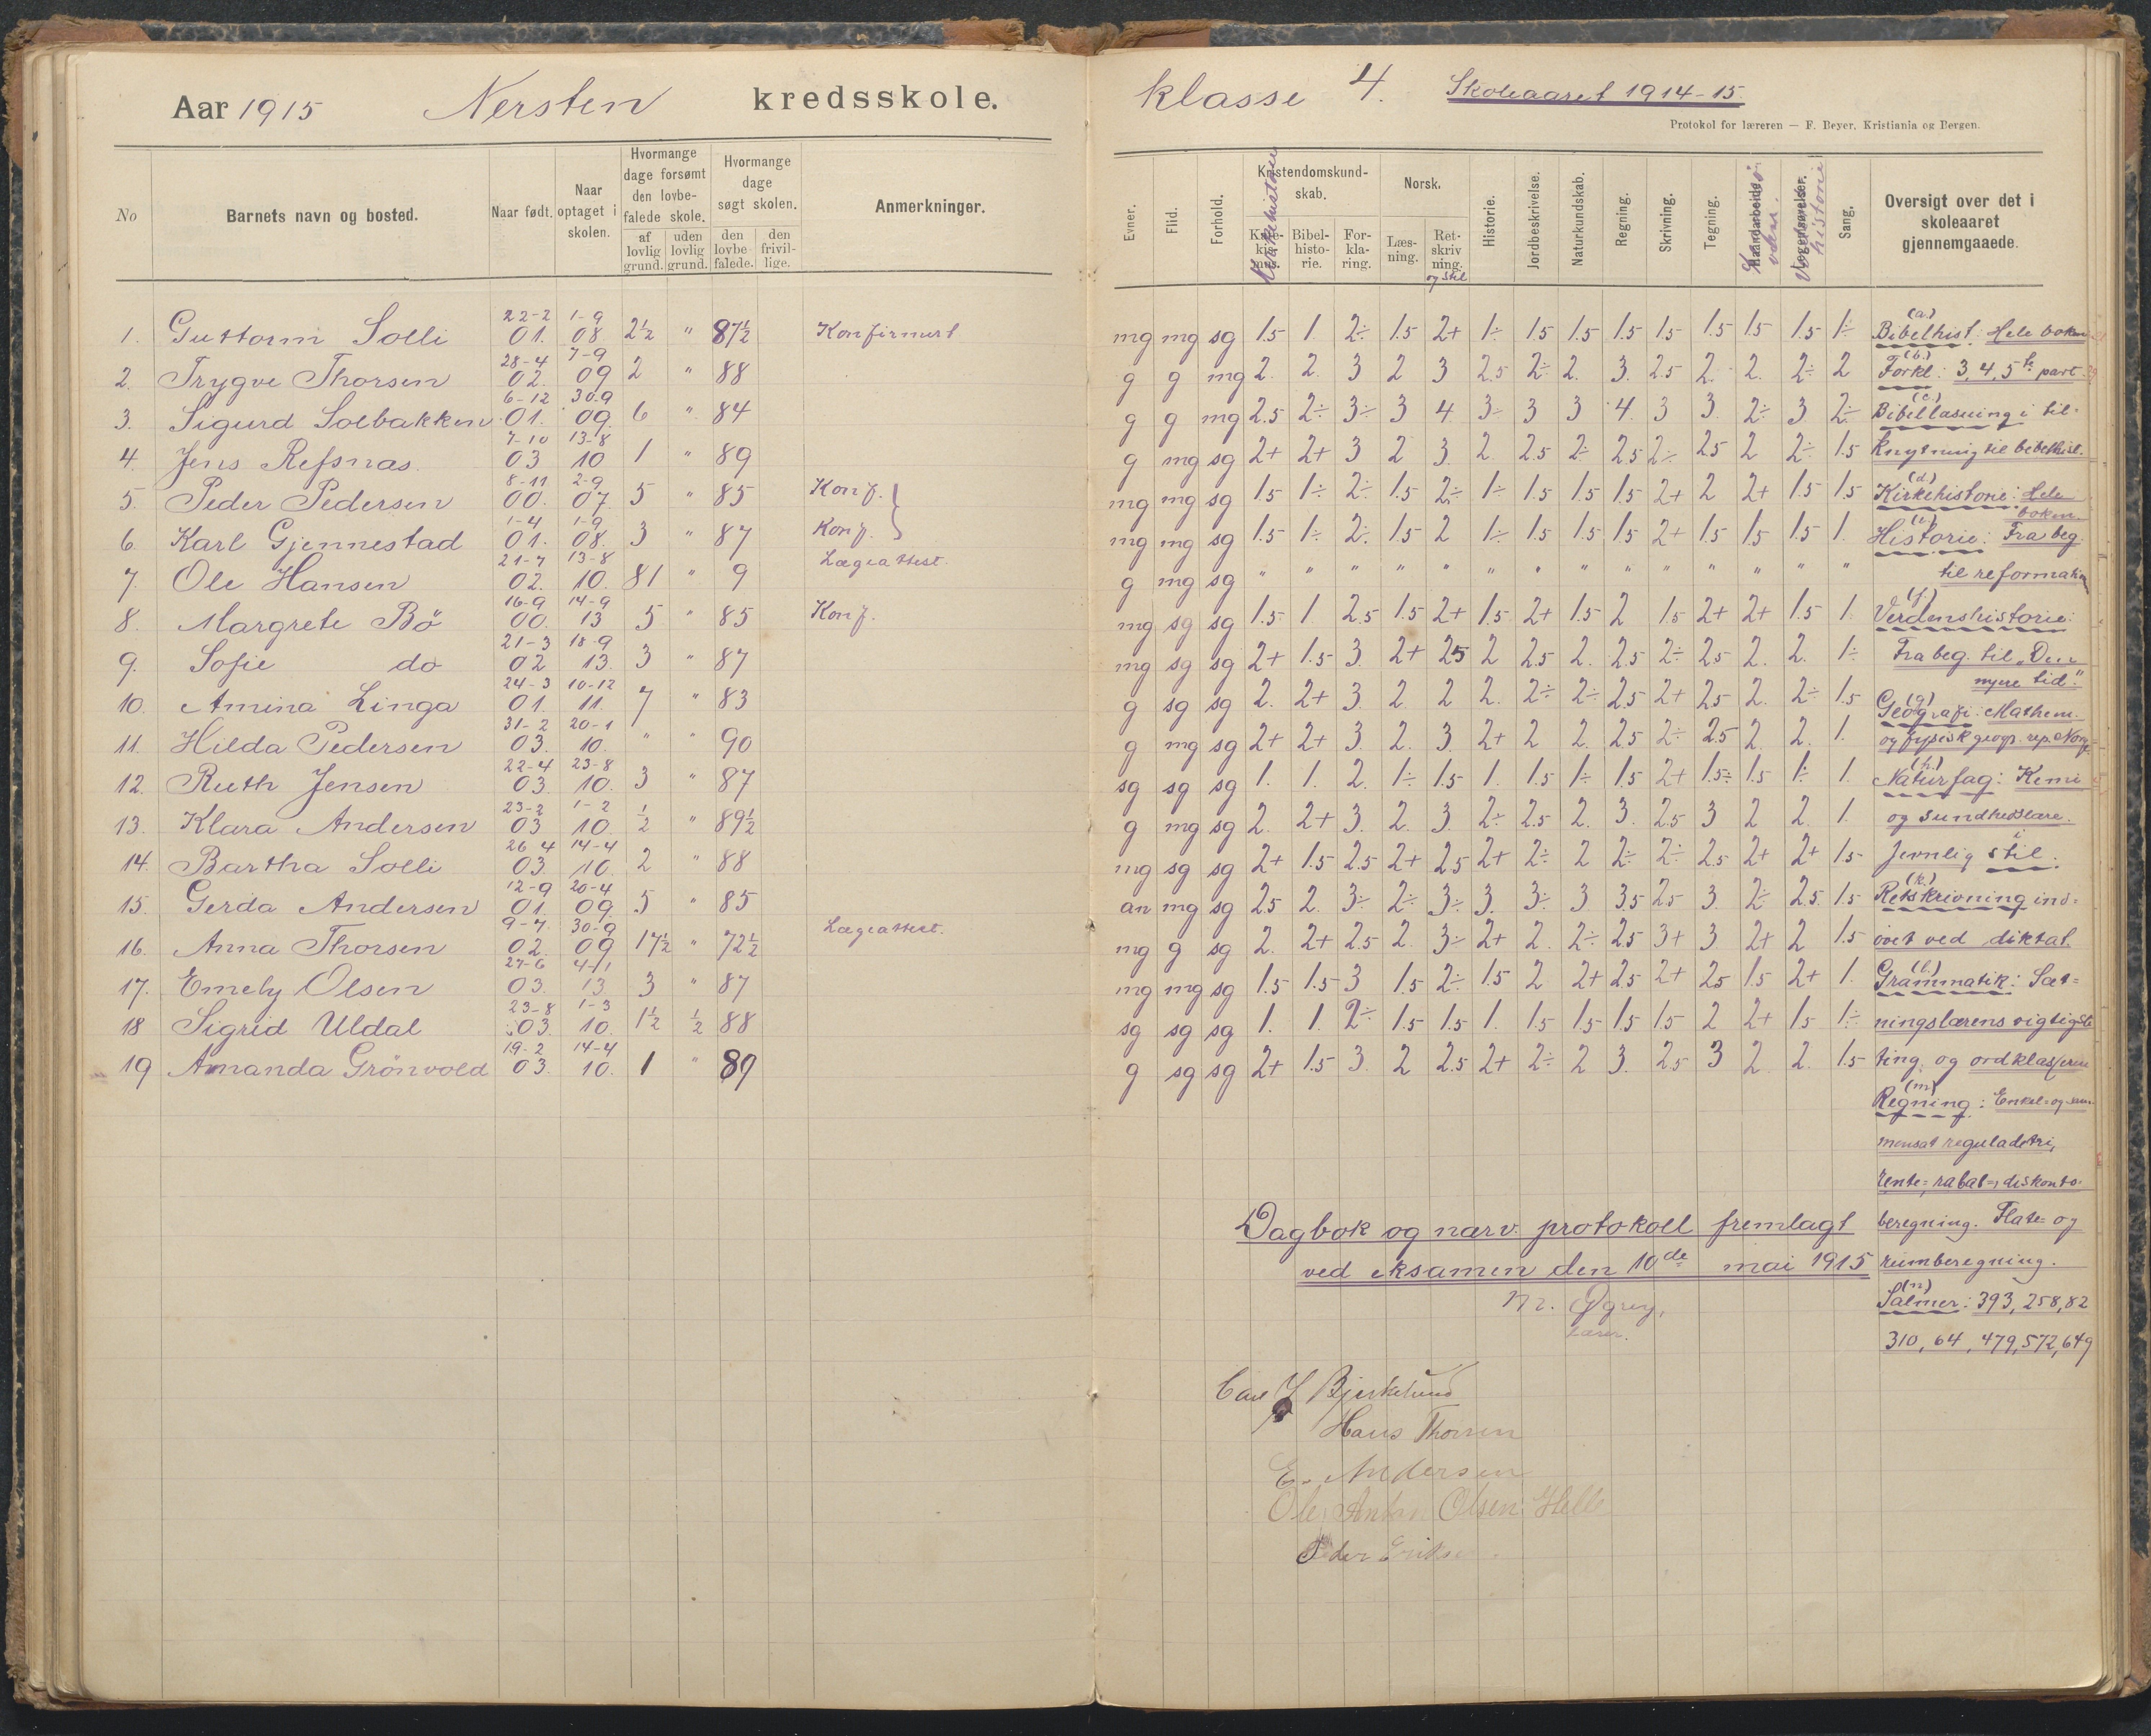 Aar 1915 Nersten kredsskole.
No Barnets navn og bosted. Naar født. Naar optaget i skolen. Hvormange dage forsømt den lovbefalede skole. af lovlig grund. uden lovlig grund. Hvormange dage søgt skolen. den lovbefalede. den frivillige. Anmerkninger.
1. Guttorm Solli 22-2 01. 1-9 08 2½ " 87½ Konfirmert
2. Trygve Thorsen 28-4 02. 7-9 09 2 " 88
3. Sigurd Solbakken 6-12 01. 30-9 09. 6 " 84
4. Jens Refsnæs. 7-10 03 13-8 10 1 " 89
5. Peder Pedersen 8-11 00. 2-9 07. 5 " 85 Konf.
6. Karl Gjennestad 1-4 01. 1-9 08. 3 " 87 Konf.
7. Ole Hansen 21-7 02. 13-8 10. 81 " 9 Lægeattest.
8. Margrete Bö 16-9 00. 14-9 13 5 " 85 Konf.
9. Sofie do 21-3 02 18-9 13. 3 " 87
10. Amina Linga 24-3 01. 10-12 11. 7 " 83
11. Hilda Pedersen 31-2 03. 20-1 10. " " 90
12. Ruth Jensen 22-4 03. 23-8 10. 3 " 87
13. Klara Andersen 23-2 03 1-2 10. ½ " 89½
14. Bartha Solli 26 4 03. 14-4 10. 2 " 88
15. Gerda Andersen 12-9 01. 20-4 09. 5 " 85
16. Anna Thorsen 9-7. 02. 30-9 09 17½ " 72½ Lægeattest.
17. Emely Olsen 27-6 03. 4-11 13 3 " 87
18 Sigrid Uldal 23-8 03. 1-3 10. 1½ ½ 88
19 Amanda Grönvold 19-2 03. 14-4 10. 1 " 89
klasse 4. Skoleaaret 1914-15.
Protokol for læreren — F. Beyer, Kristiania og Bergen.
Evner. Flid. Forhold. Kristendomskundskab. Kirkehistorie Bibelhistorie. Forklaring. Norsk. Læsning. Retskrivning. og stil Historie. Jordbeskrivelse. Naturkundskab. Regning. Skrivning. Tegning. Haandarbeide. Legemsøvelser. Verdenshistorie Sang. Oversigt over det i skoleaaret gjennemgaaede.
mg mg sg 1.5 1. 2÷ 1.5 2+ 1÷ 1.5 1.5 1.5 1.5 1.5 1.5 1.5 1÷
g g mg 2. 2. 3 2 3 2.5 2÷ 2. 3. 2.5 2. 2. 2÷ 2
g g mg 2.5 2÷ 3÷ 3 4 3÷ 3 3 4. 3 3. 2÷ 3 2÷
g mg sg 2+ 2+ 3 2 3. 2. 2.5 2÷ 2.5 2÷ 2.5 2 2÷ 1.5
mg mg sg 1.5 1÷ 2÷ 1.5 2÷ 1÷ 1.5 1.5 1.5 2+ 2 2+ 1.5 1.5
mg mg sg 1.5 1÷ 2÷ 1.5 2 1÷ 1.5 1.5 1.5 2+ 1.5 1.5 1.5 1.
g mg sg " " " " " " " " " " " " " "
mg sg sg 1.5 1 2.5 1.5 2+ 1.5 2+ 1.5 2 1.5 2+ 2+ 1.5 1.
mg sg sg 2+ 1.5 3. 2+ 2.5 2 2.5 2. 2.5 2÷ 2.5 2. 2. 1÷
g sg sg 2. 2+ 3. 2. 2 2. 2÷ 2÷ 2.5 2+ 2.5 2. 2÷ 1.5
g mg sg 2+ 2+ 3. 2. 3. 2+ 2 2. 2.5 2÷ 2.5 2. 2. 1.
sg sg sg 1. 1. 2. 1÷ 1.5 1. 1.5 1÷ 1.5 2+ 1.5÷ 1.5 1÷ 1.
g mg sg 2. 2+ 3. 2. 3. 2÷ 2.5 2. 3. 2.5 3 2 2. 1.
mg sg sg 2+ 1.5 2.5 2+ 2.5 2+ 2÷ 2 2÷ 2÷ 2.5 2+ 2+ 1.5
an mg sg 2.5 2. 3÷ 2÷ 3÷ 3. 3÷ 3 3.5 2.5 3. 2÷ 2.5 1.5
mg g sg 2. 2+ 2.5 2. 3÷ 2+ 2. 2÷ 2.5 3+ 3. 2+ 2 1.5
mg mg sg 1.5 1.5 3 1.5 2÷ 1.5 2 2+ 2.5 2+ 2.5 1.5 2+ 1.
sg sg sg 1. 1. 2÷ 1.5 1.5 1. 1.5 1.5 1.5 1.5 2 2+ 1.5 1÷
g sg sg 2+ 1.5 3. 2 2.5 2+ 2÷ 2 3. 2.5 3 2. 2. 1.5
(a.)
Bibelhist: Hele boken
(b.)
Forkl: 3, 4, 5te part
(c)
Bibellæsning i til-
knytning til bibelhist.
(d.)
Kirkehistorie: Hele
boken.
(e.)
Historie: Fra beg.
til reformation
(f.)
Verdenshistorie:
Fra beg. til „Den
nyere tid."
(g)
Geografi: Mathem.
og fysisk geogr. rep. Norge
(h.)
Naturfag: Kemi
og sundhedslære.
i
Jevnlig stil.
(k.)
Retskrivning ind-
övet ved diktat.
(l.)
Grammatik: Sæt-
ningslærens vigtigste
ting og ordklasserne
(m)
Regning: Enkel- og sam-
mensat reguladetri,
rente-, rabat-, diskonto-
beregning. Flate- og
rumberegning.
(n)
Salmer: 393, 258, 82
310, 64, 479, 572, 649
Dagbok og nærv. protokoll fremlagt
ved eksamen den 10de mai 1915
lærer.
Carl J Bjerkelund
Hans Thorsen
E. Andersen
Ole Anton Olsen Helle
Peder Eriksen